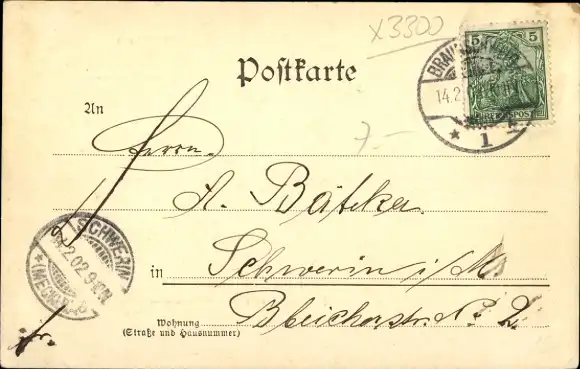 x3300
5 5
BRAUNSCHWEIG
14.2.
* 1
REICHSPOST
Postkarte
7.-
An
Herrn
A. Bätcke
SCHWERIN
2.02.9
in Schwerin i/M
Bleicherstr. No. 2
Wohnung
(Straße und Hausnummer)